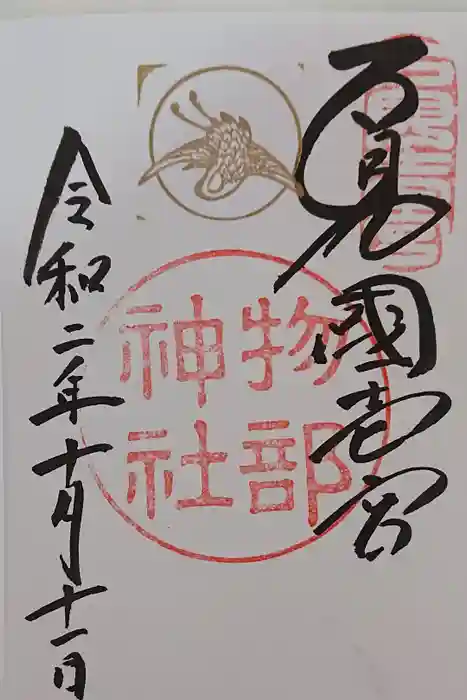 石見國壱宮
物部
神社
令和二年十月十一日